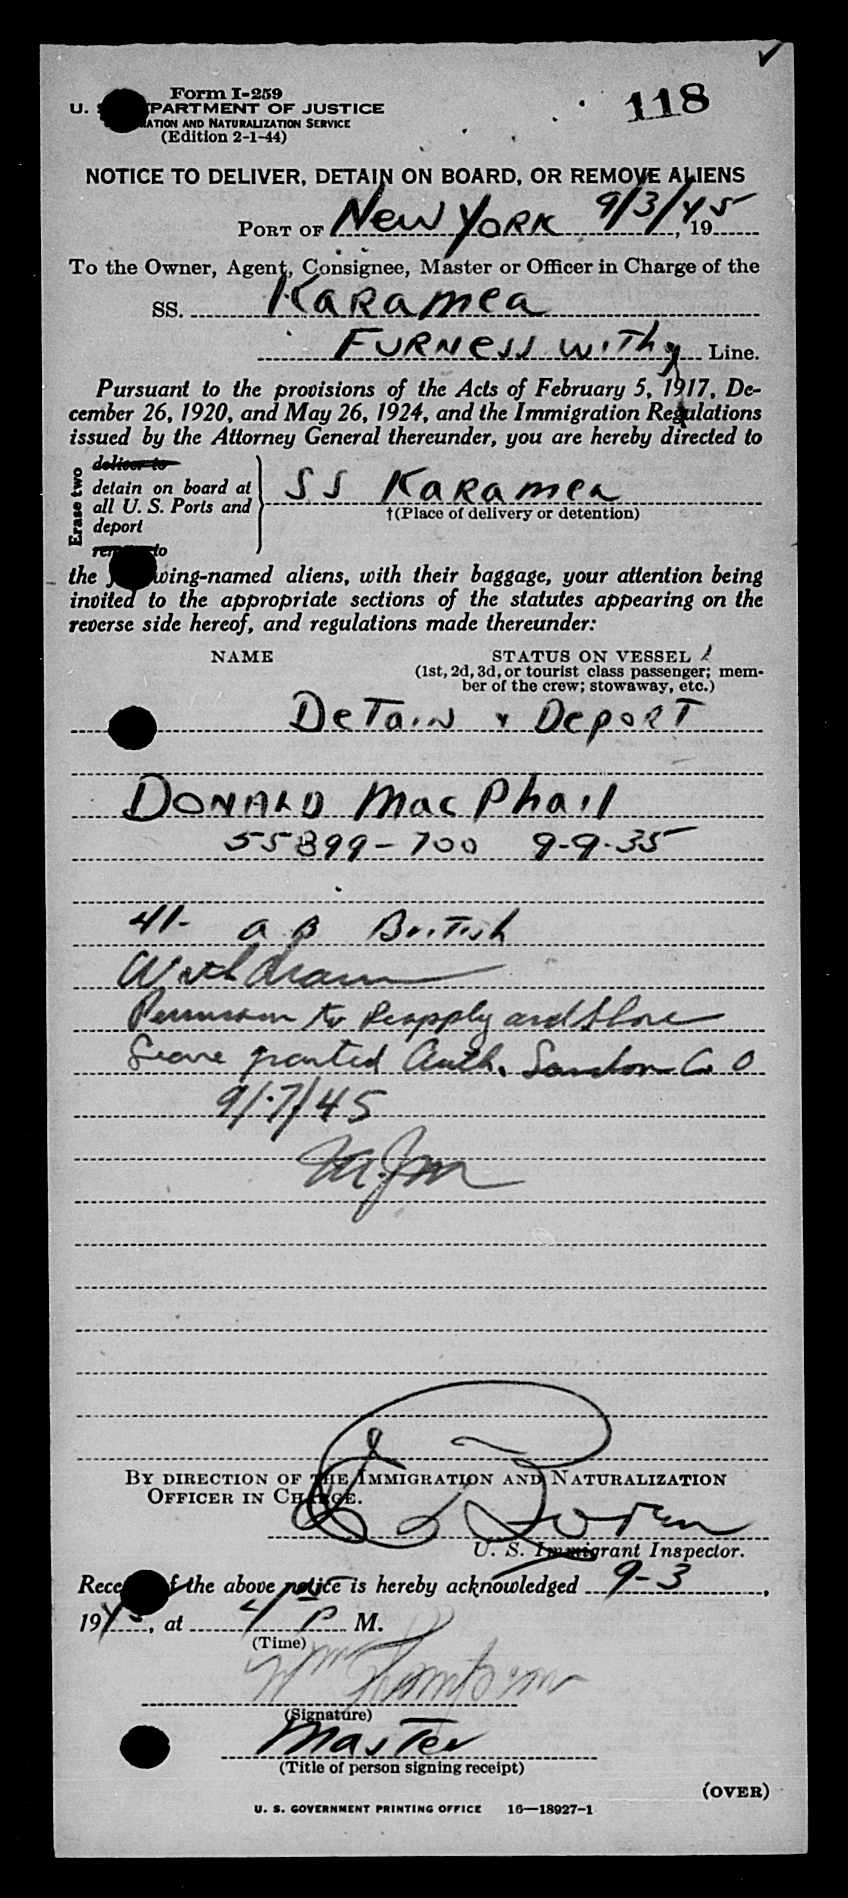 ✓
Form I-259
118
U. S. DEPARTMENT OF JUSTICE
IMMIGRATION AND NATURALIZATION SERVICE
(Edition 2-1-44)
NOTICE TO DELIVER, DETAIN ON BOARD, OR REMOVE ALIENS
PORT OF New York 9/3/45, 19
To the Owner, Agent, Consignee, Master or Officer in Charge of the
SS. Karamea
Furness Withy Line.
Pursuant to the provisions of the Acts of February 5, 1917, De-
cember 26, 1920, and May 26, 1924, and the Immigration Regulations
issued by the Attorney General thereunder, you are hereby directed to
Erase two
deliver to
detain on board at
all U. S. Ports and
deport
remove to
SS Karamea
†(Place of delivery or detention)
the following-named aliens, with their baggage, your attention being
invited to the appropriate sections of the statutes appearing on the
reverse side hereof, and regulations made thereunder:
NAME STATUS ON VESSEL
(1st, 2d, 3d, or tourist class passenger; mem-
ber of the crew; stowaway, etc.)
Detain & Deport
Donald MacPhail
55899-700 9-9-35
41- AB British
Withdrawn
Permission to Reapply and Shore
Leave granted Auth. C O
9/7/45
By direction of the Immigration and Naturalization
Officer in Charge.
U. S. Immigrant Inspector.
Receipt of the above notice is hereby acknowledged 9-3,
1945, at 4 15 P M.
(Time)
Wm Thompson
(Signature)
Master
(Title of person signing receipt)
(OVER)
U. S. GOVERNMENT PRINTING OFFICE 16—18927-1